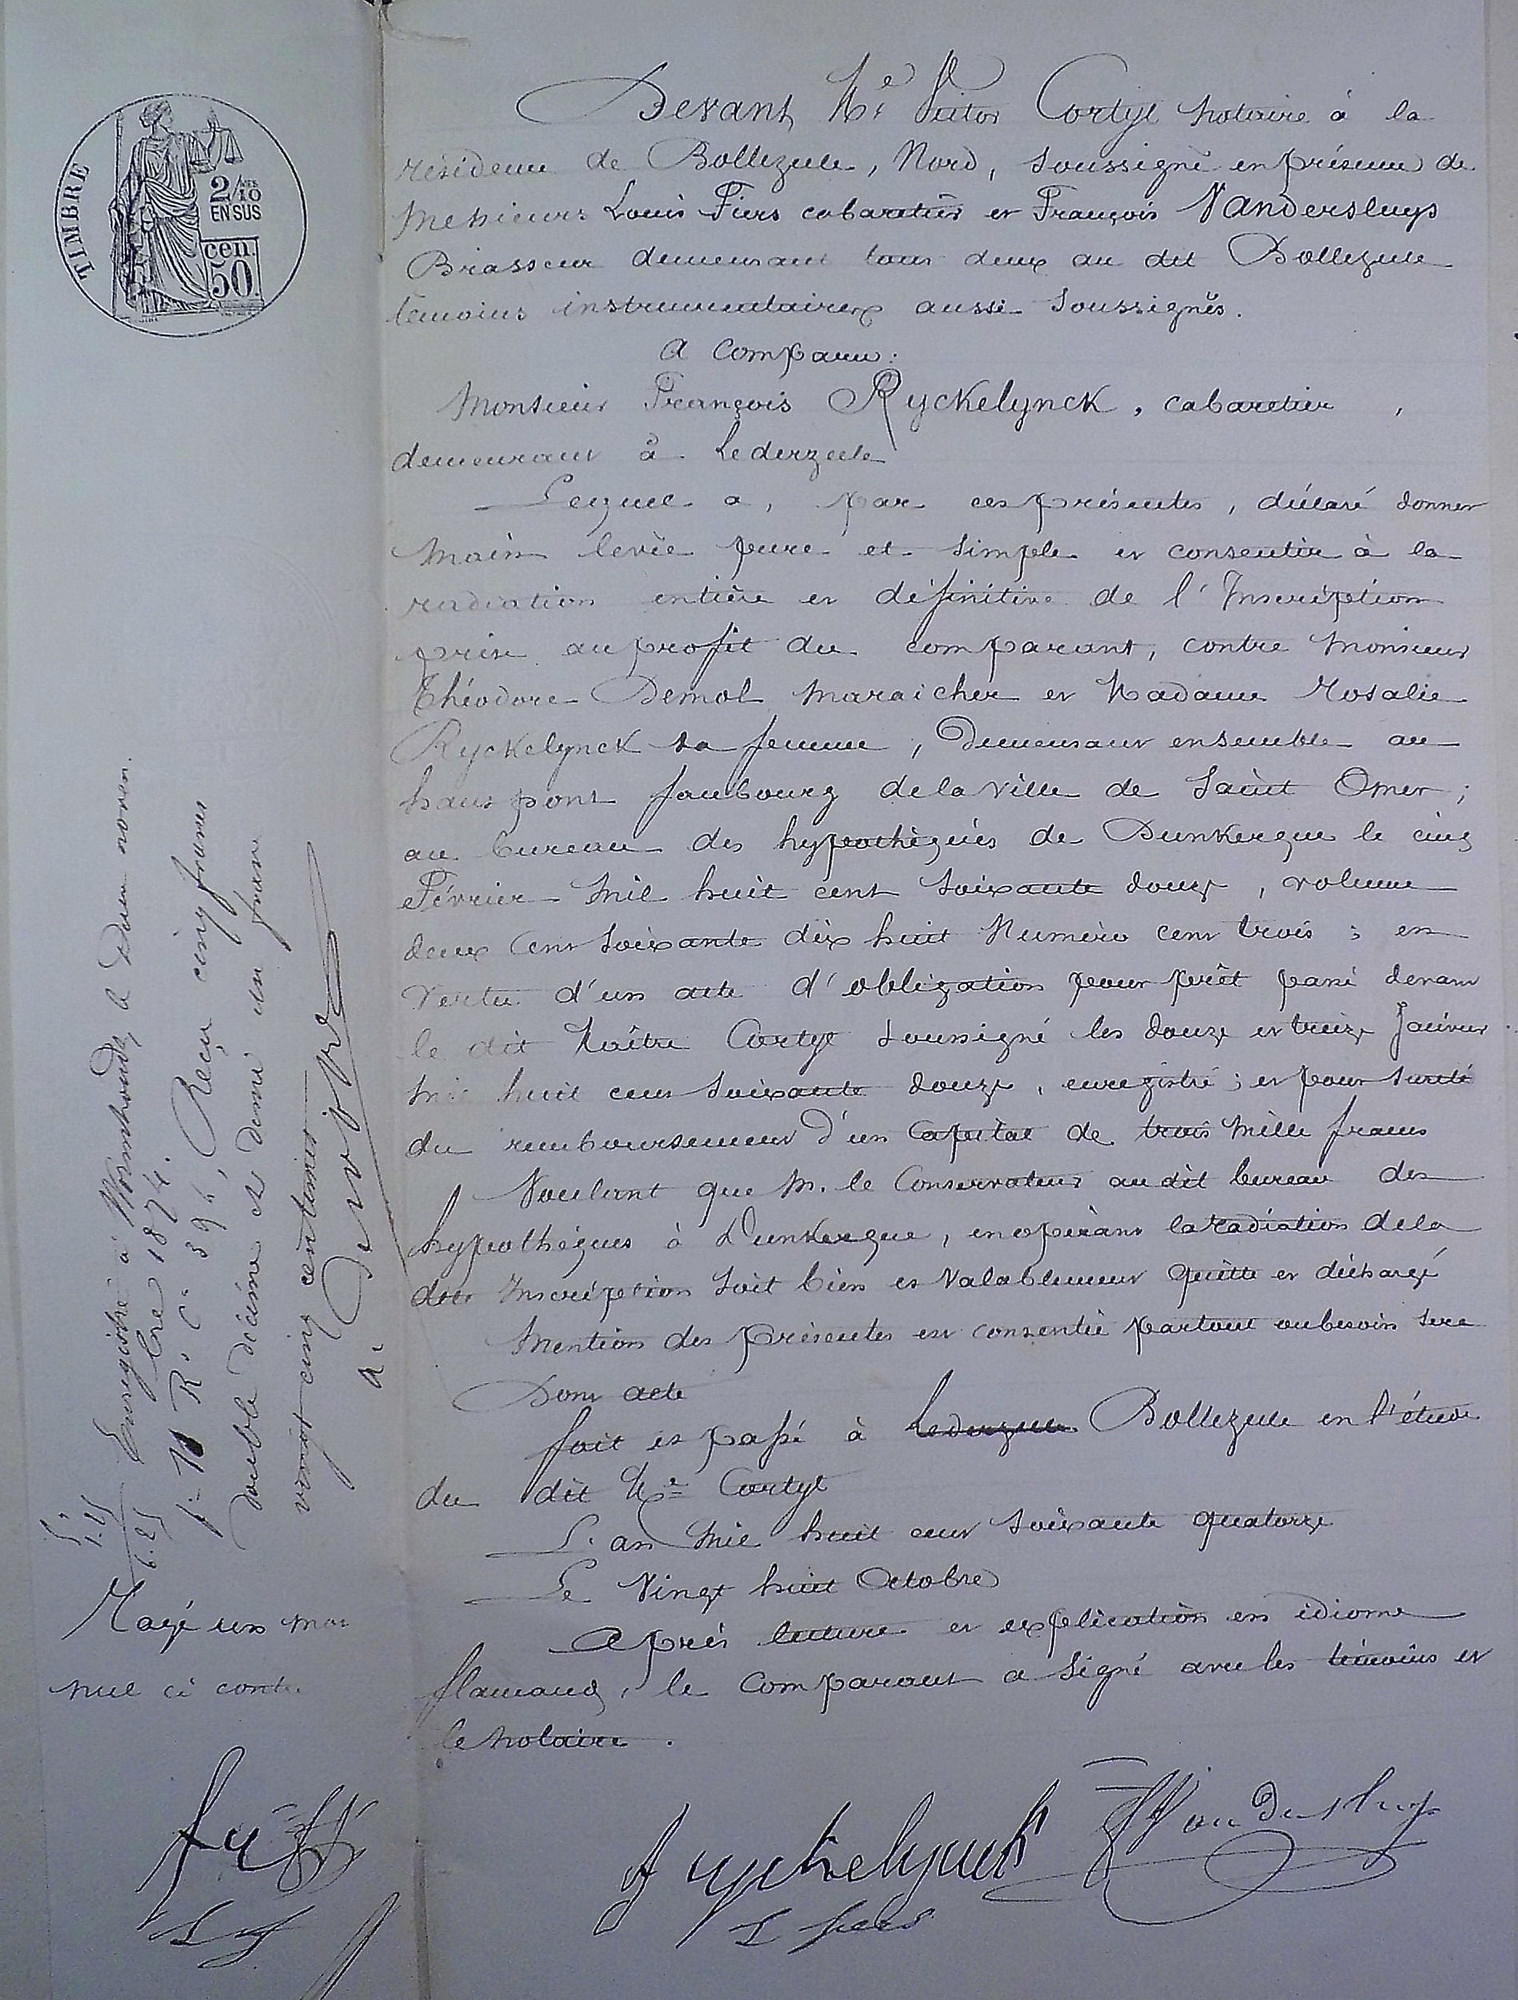 TIMBRE
2/10
EN SUS
cen.
50.
Devant Me Victor Cortyl notaire à la
résidence de Bollezeele, Nord, soussigné en présence de
Messieurs Louis Fiers cabaretier et François Vandersluys
Brasseur demeurant tous deux au dit Bollezeele
témoins instrumentaires aussi soussignés.
A Comparu :
Monsieur François Ryckelynck, cabaretier,
demeurant à Lederzeele
Lequel a, par ces présentes, déclaré donner
main levée pure et simple et consentir à la
radiation entière et définitive de l'Inscription
prise au profit du comparant, contre Monsieur
Théodore Demol maraicher et Madame Rosalie
Ryckelynck sa femme, Demeurant ensemble au
haut pont faubourg de la ville de Saint Omer ;
au bureau des hypothèques de Dunkerque le cinq
Février mil huit cent soixante douze, volume
deux cent soixante dix huit Numéro cent trois ; en
vertu d'un acte d'obligation pour prêt passé devant
le dit Maître Cortyl soussigné les douze et treize Janvier
mil huit cent soixante douze, enregistré ; et pour sureté
du remboursement d'un Capital de trois mille francs
Voulant que M. le Conservateur au dit bureau des
hypothèques à Dunkerque, en opérant la radiation de la
dite Inscription soit bien et valablement quitte et déchargé
Mention des présentes est consentie partout ou besoin sera
Dont acte
fait et passé à Lederzeele Bollezeele en l'étude
du dit Me Cortyl
L'an mil huit cent soixante quatorze
Le Vingt huit Octobre
Après lecture et explication en idiome
flamand, le Comparant a signé avec les témoins et
le notaire.
Enregistré à Wormhoudt, le Deux novem
bre 1874.
Ro Co Reçu cinq francs
double décime et demi un franc
vingt cinq centimes
5.
1.25
6.25
Rayé un mot
nul ci contre
f ryckelynck
FVandersluys
L fiers